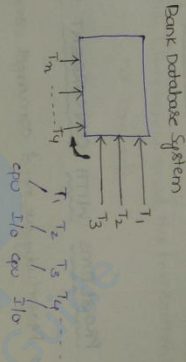 Bank Database System
T1
T2
T3
Tn ------ T4
T1 T2 T3 T4 - - - -
CPU I/O CPU I/O